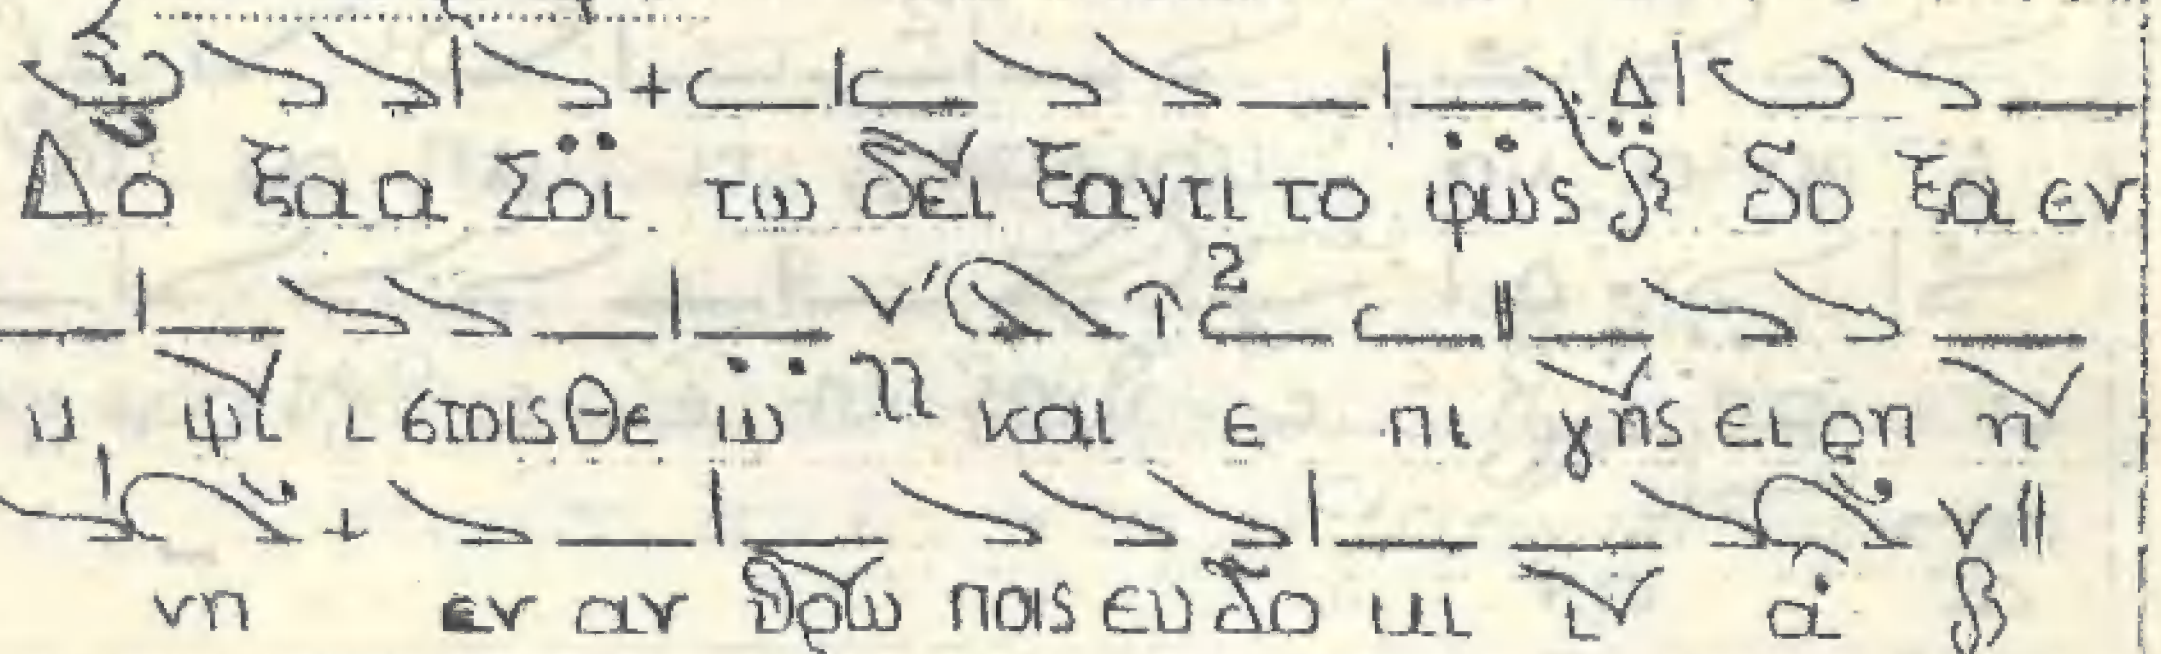 Δο ξα α Σοι τω δει ξαντι το φως β Δ δο ξα εν
υ ψι ι στοις Θε ω και ε 2 πι γης ει ρη η
νη εν αν θρω ποις ευ δο κι ι α β